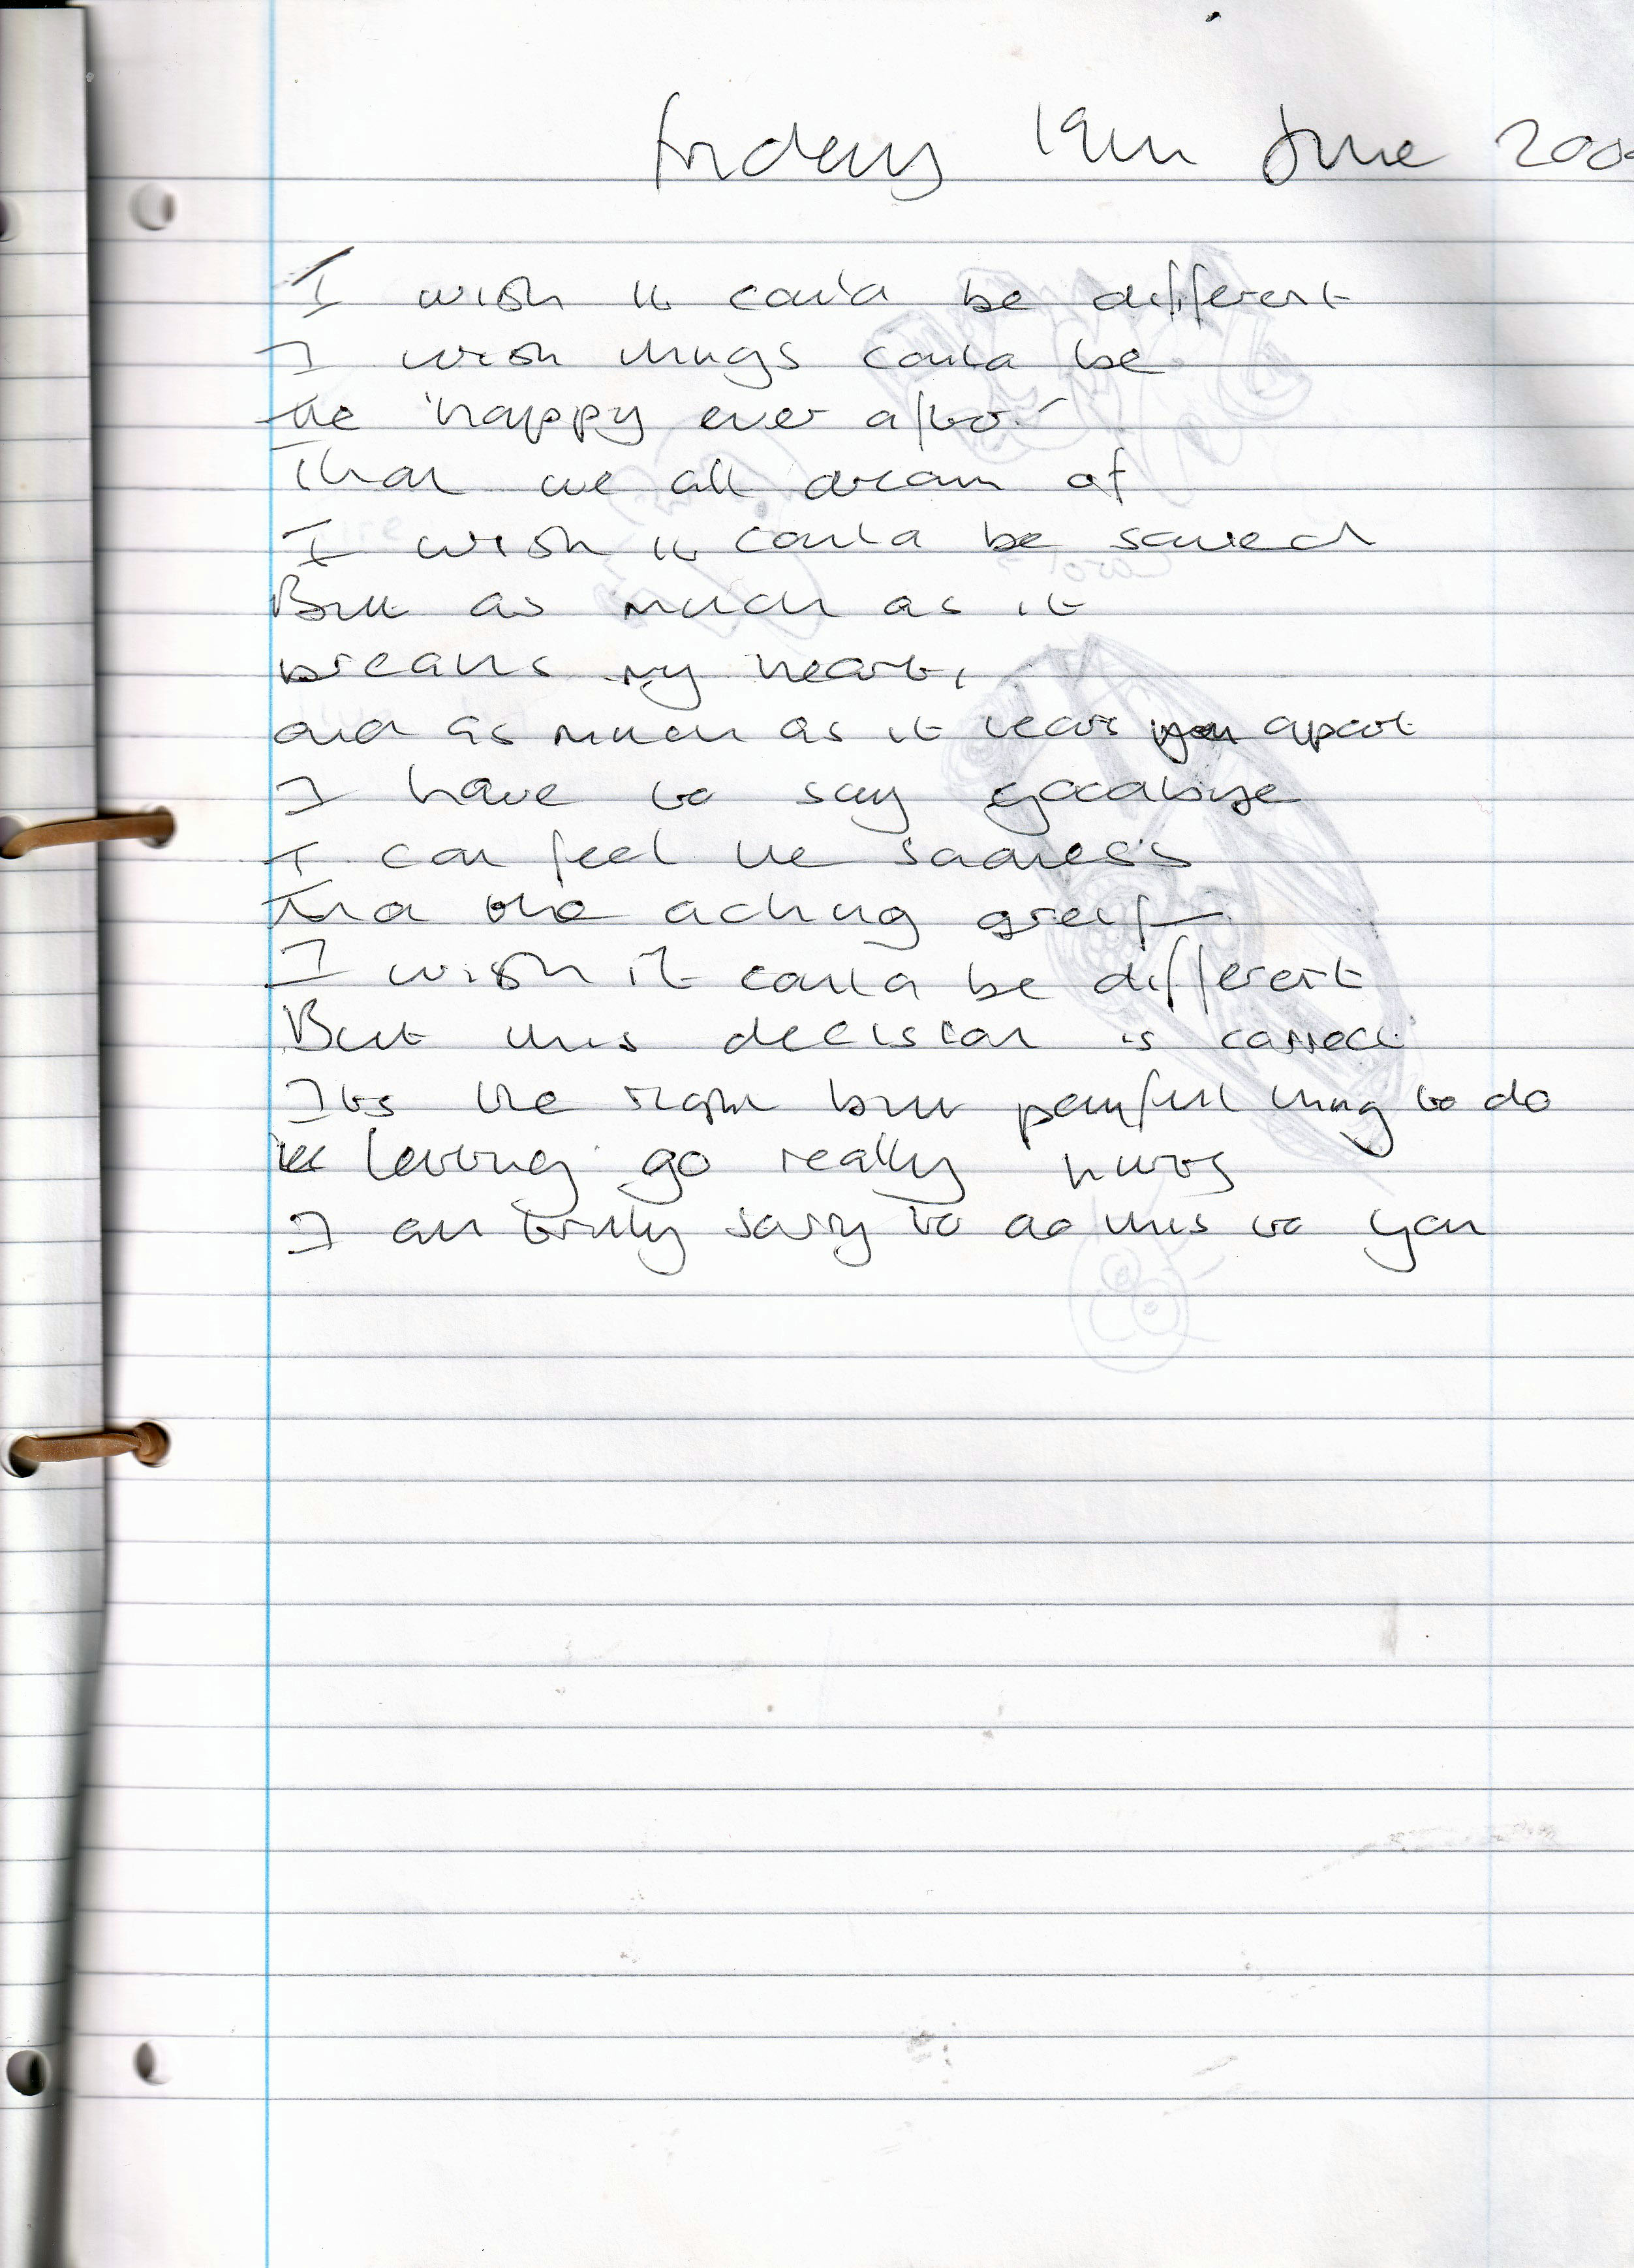 friday 19th June 200
I wish it could be different
I wish things could be
the 'happy ever after'
That we all dream of
I wish it could be saved
But as much as it
breaks my heart,
and as much as it tears you apart
I have to say goodbye
I can feel the sadness
And the aching greif
I wish it could be different
But this decision is correct
Its the right but painful thing to do
letting go really hurts
I am truly sorry to do this to you